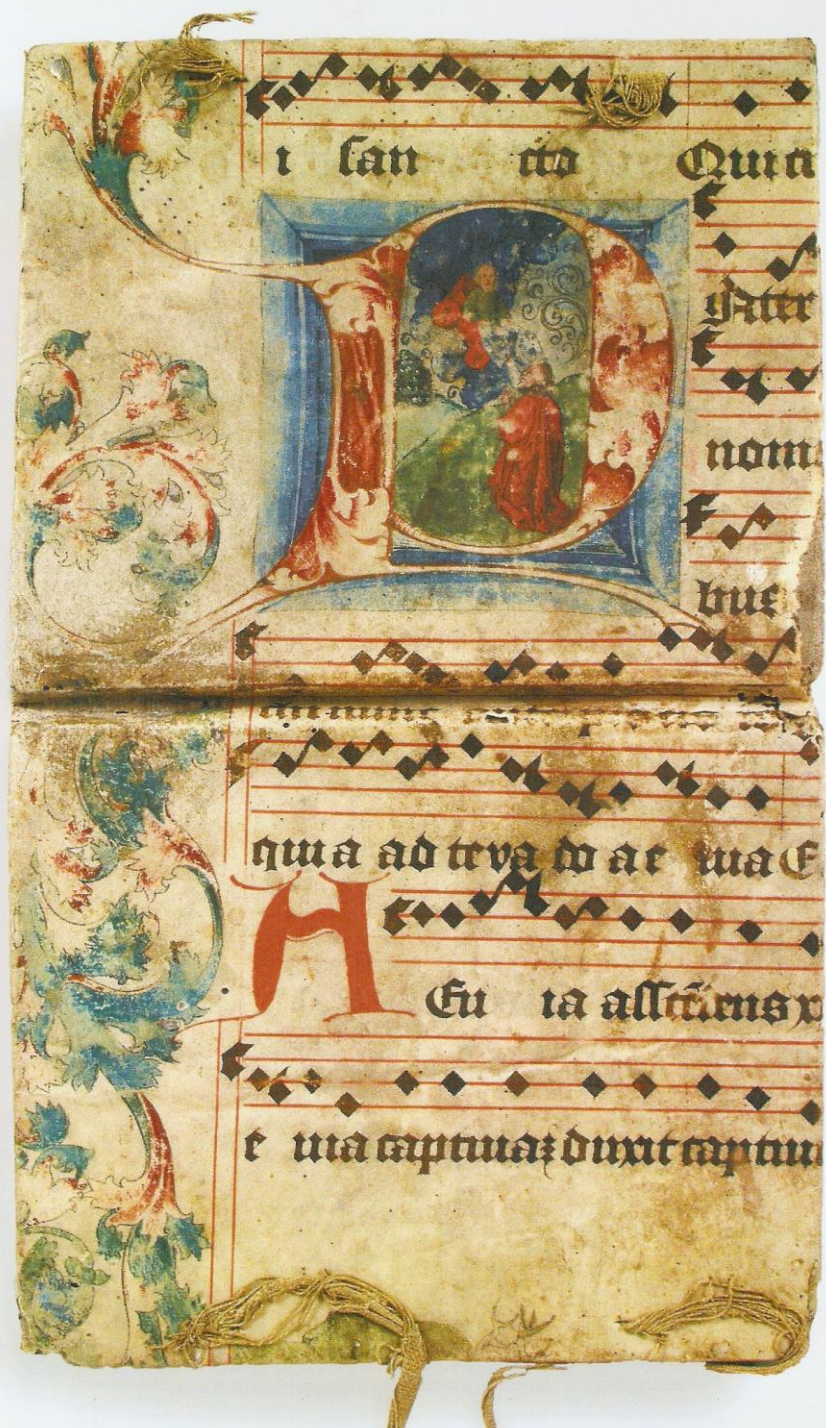 i san cto Qui ti
Pater
nom
bue
qui a ad te va do a e uia E
A Eu ia assce̅dens x
e uia captiuaz duxit captiu